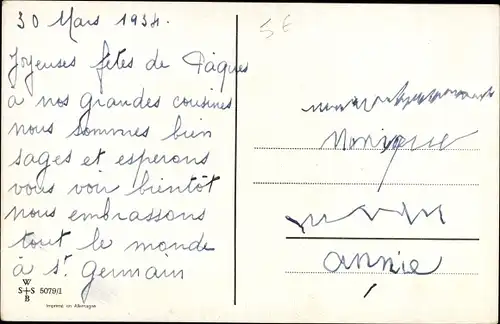 30 Mars 1934.
5€
Joyeuses fêtes de Pâques
à nos grandes cousines
nous sommes bien
sages et esperons
vous voir bientôt
nous embrassons
tout le monde
à St. Germain
Monique
annie
W
S+S 5079/1
B
Imprimé en Allemagne